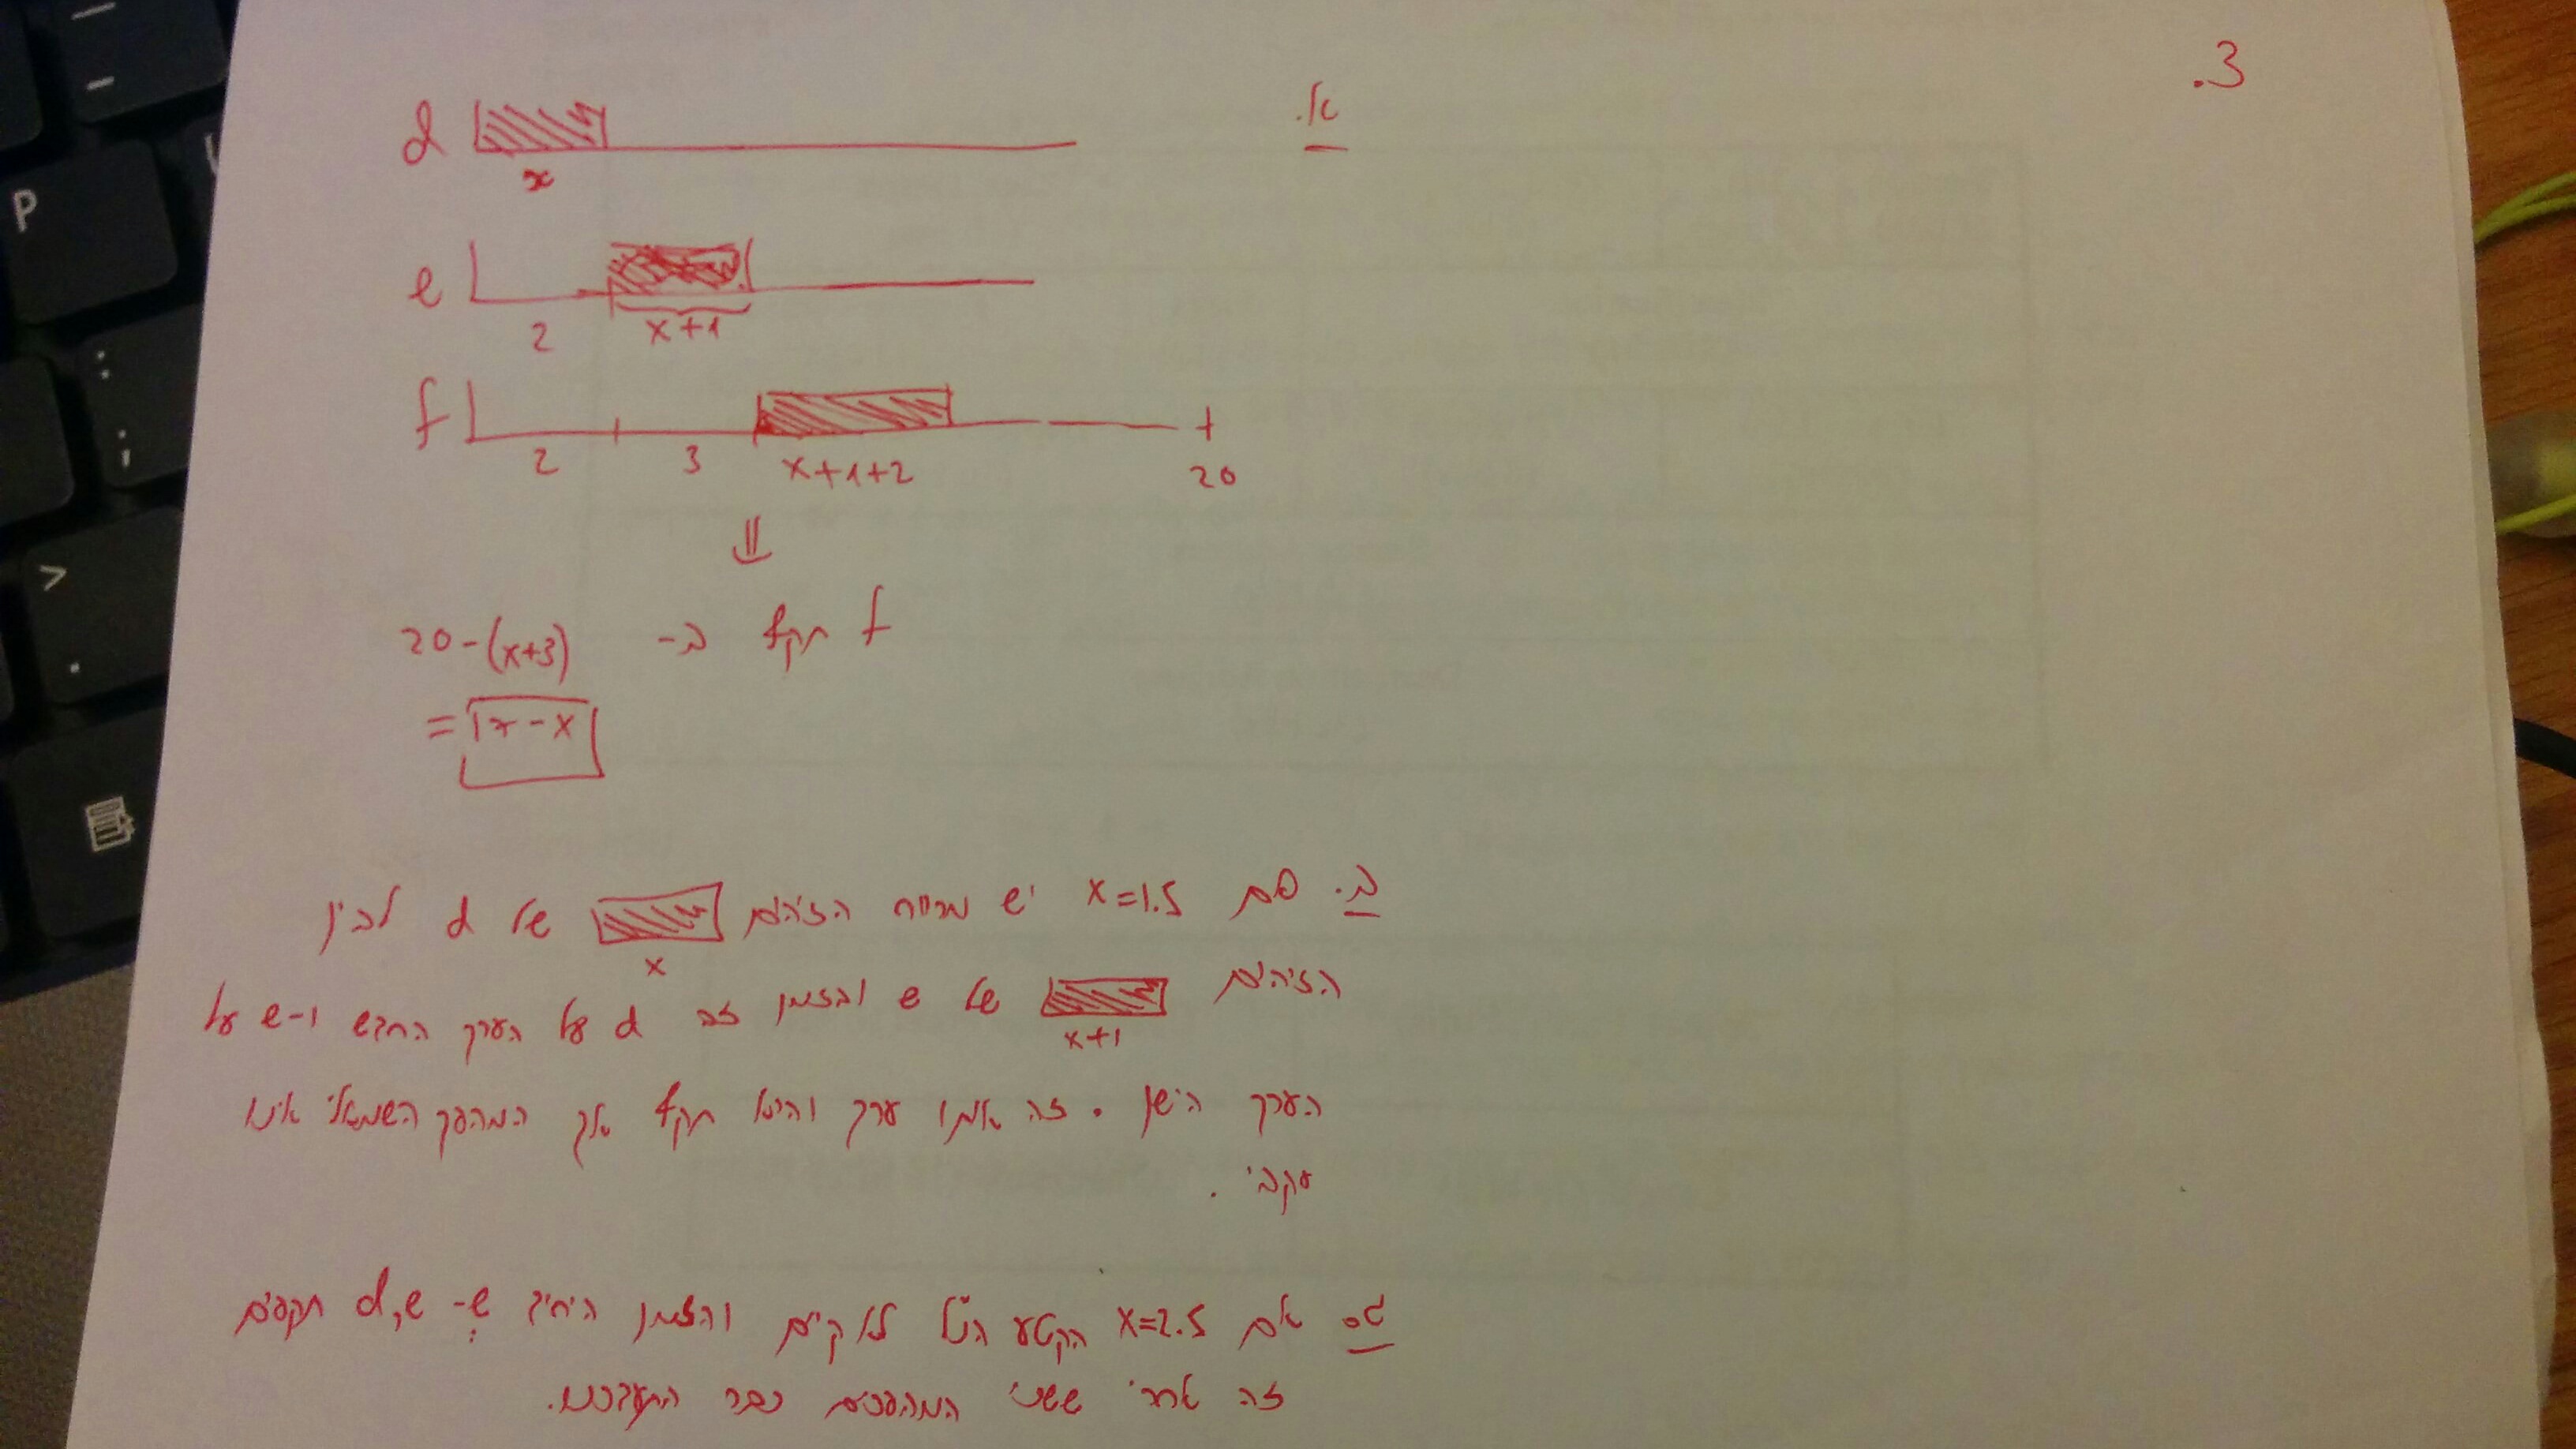 3.
א.
d
x
e
2
x+1
f
2 3 x+1+2 20
⇓
f תקף ב- 20-(x+3)
= 17-x
ב. אם x=1.5 יש מרווח הזיהום של d לבין
x
הזיהום של e ובזמן זה d על הערך החדש ו-e על
x+1
הערך הישן. זה אותו ערך והוא תקף אך המהפך השמאלי אינו
עקבי.
ג. אם x=2.5 הקטע הנ"ל לא קיים והזמן היחיד ש- e,d תקפים
זה אחרי ששני המהפכים כבר התעדכנו.
P